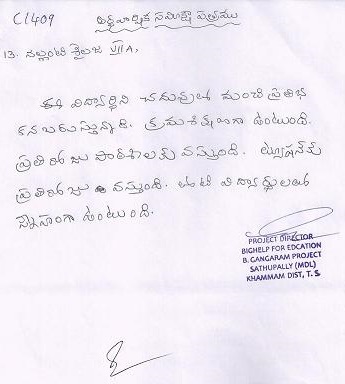 C1409
అర్ధవార్షిక సమీక్షా పత్రము
13. నల్లంటి శైలజ VII A,
ఈ విద్యార్థిని చదువులో మంచి ప్రతిభ
కనబరుస్తున్నది. క్రమశిక్షణగా ఉంటుంది.
ప్రతిరోజు పాఠశాలకు వస్తుంది. ట్యూషన్‌కు
ప్రతిరోజు వస్తుంది. తోటి విద్యార్థులతో
స్నేహంగా ఉంటుంది.
PROJECT DIRECTOR
BIGHELP FOR EDCATION
B. GANGARAM PROJECT
SATHUPALLY (MDL)
KHAMMAM DIST, T. S.